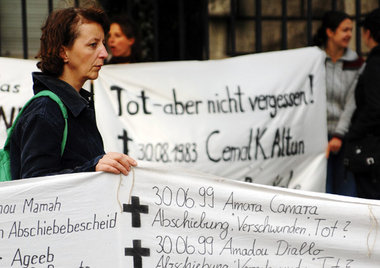 Tot - aber nicht vergessen!
✝ 30.08.1983 Cemal K. Altun
mou Mamah
Abschiebebescheid
Ageeb
✝ 30.06.99 Amara Camara
Abschiebung. Verschwunden. Tot?
✝ 30.06.99 Amadou Diallo
Abschiebung. Verschwunden. Tot?